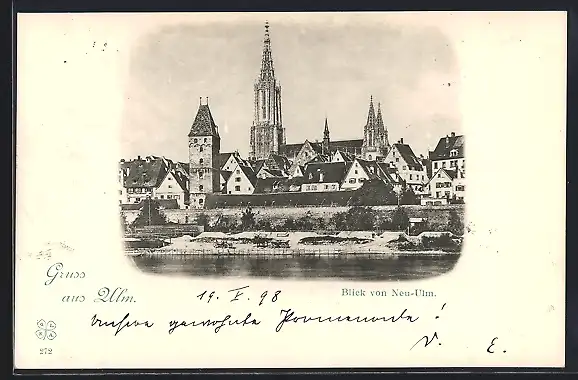 Gruss
aus Ulm.
19. V. 98
Blick von Neu-Ulm.
Unsere gewohnte Promenade!
V. E.
272